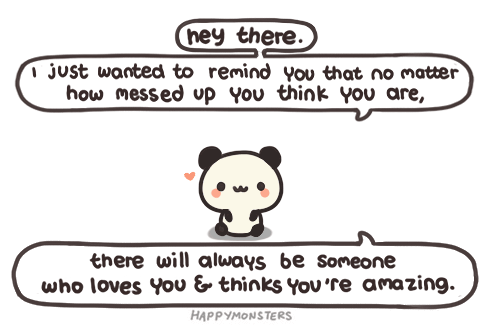 hey there.
i just wanted to remind you that no matter
how messed up you think you are,
there will always be someone
who loves you & thinks you're amazing.
HAPPYMONSTERS